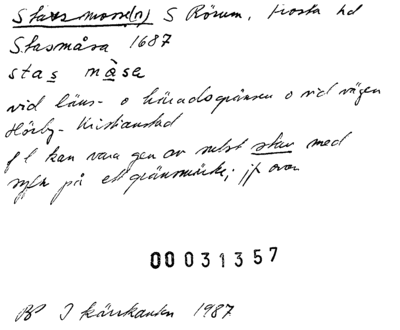 Stass mosse(n) S Rörum, Frosta hd
Stasmåsa 1687
stas måsa
vid läns- o häradsgränsen o vid vägen
Hörby- Kristianstad
f l kan vara gen av subst stav med
syfn på ett gränsmärke; jf ovan
00031357
I kärrkanten 1987